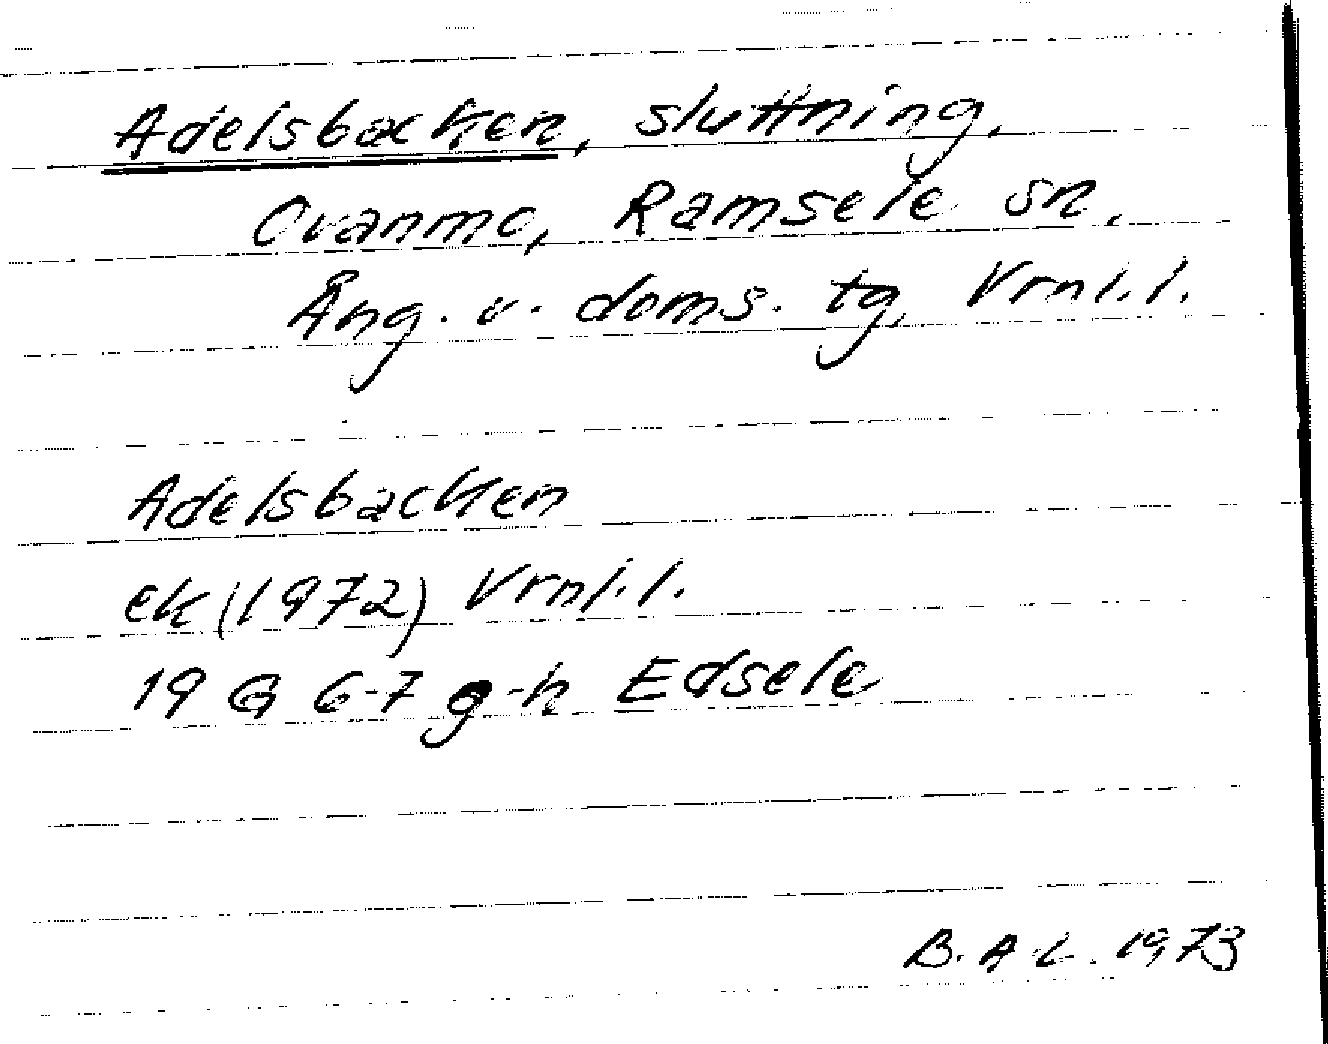 Adelsbacken, sluttning,
Ovanmo, Ramsele sn,
Ång. v. doms. tg, Vrnl. l.
Adelsbacken
ek (1972) Vrnl. l.
19 G 6-7 g-h Edsele
B. A. L. 1973